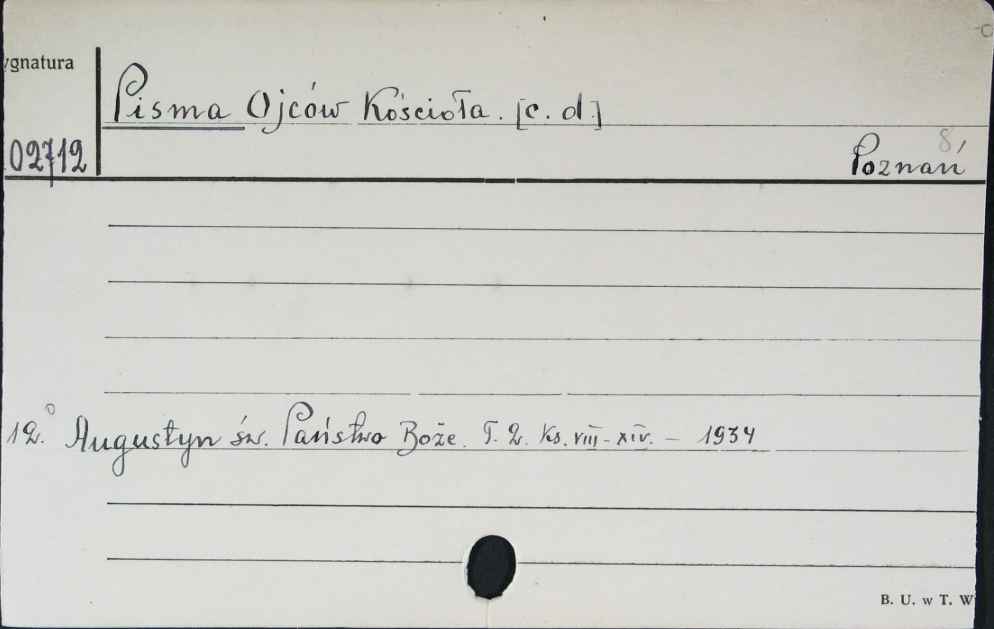 ygnatura
Pisma Ojców Kościoła. [c. d.]
02712
8,
Poznań
12. Augustyn św. Państwo Boże. T. 2. Ks. VIII - XIV. - 1934
B. U. w T. W